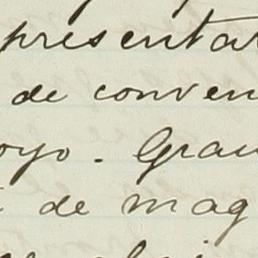 presentar
de conven
oyo. Gran
de mag